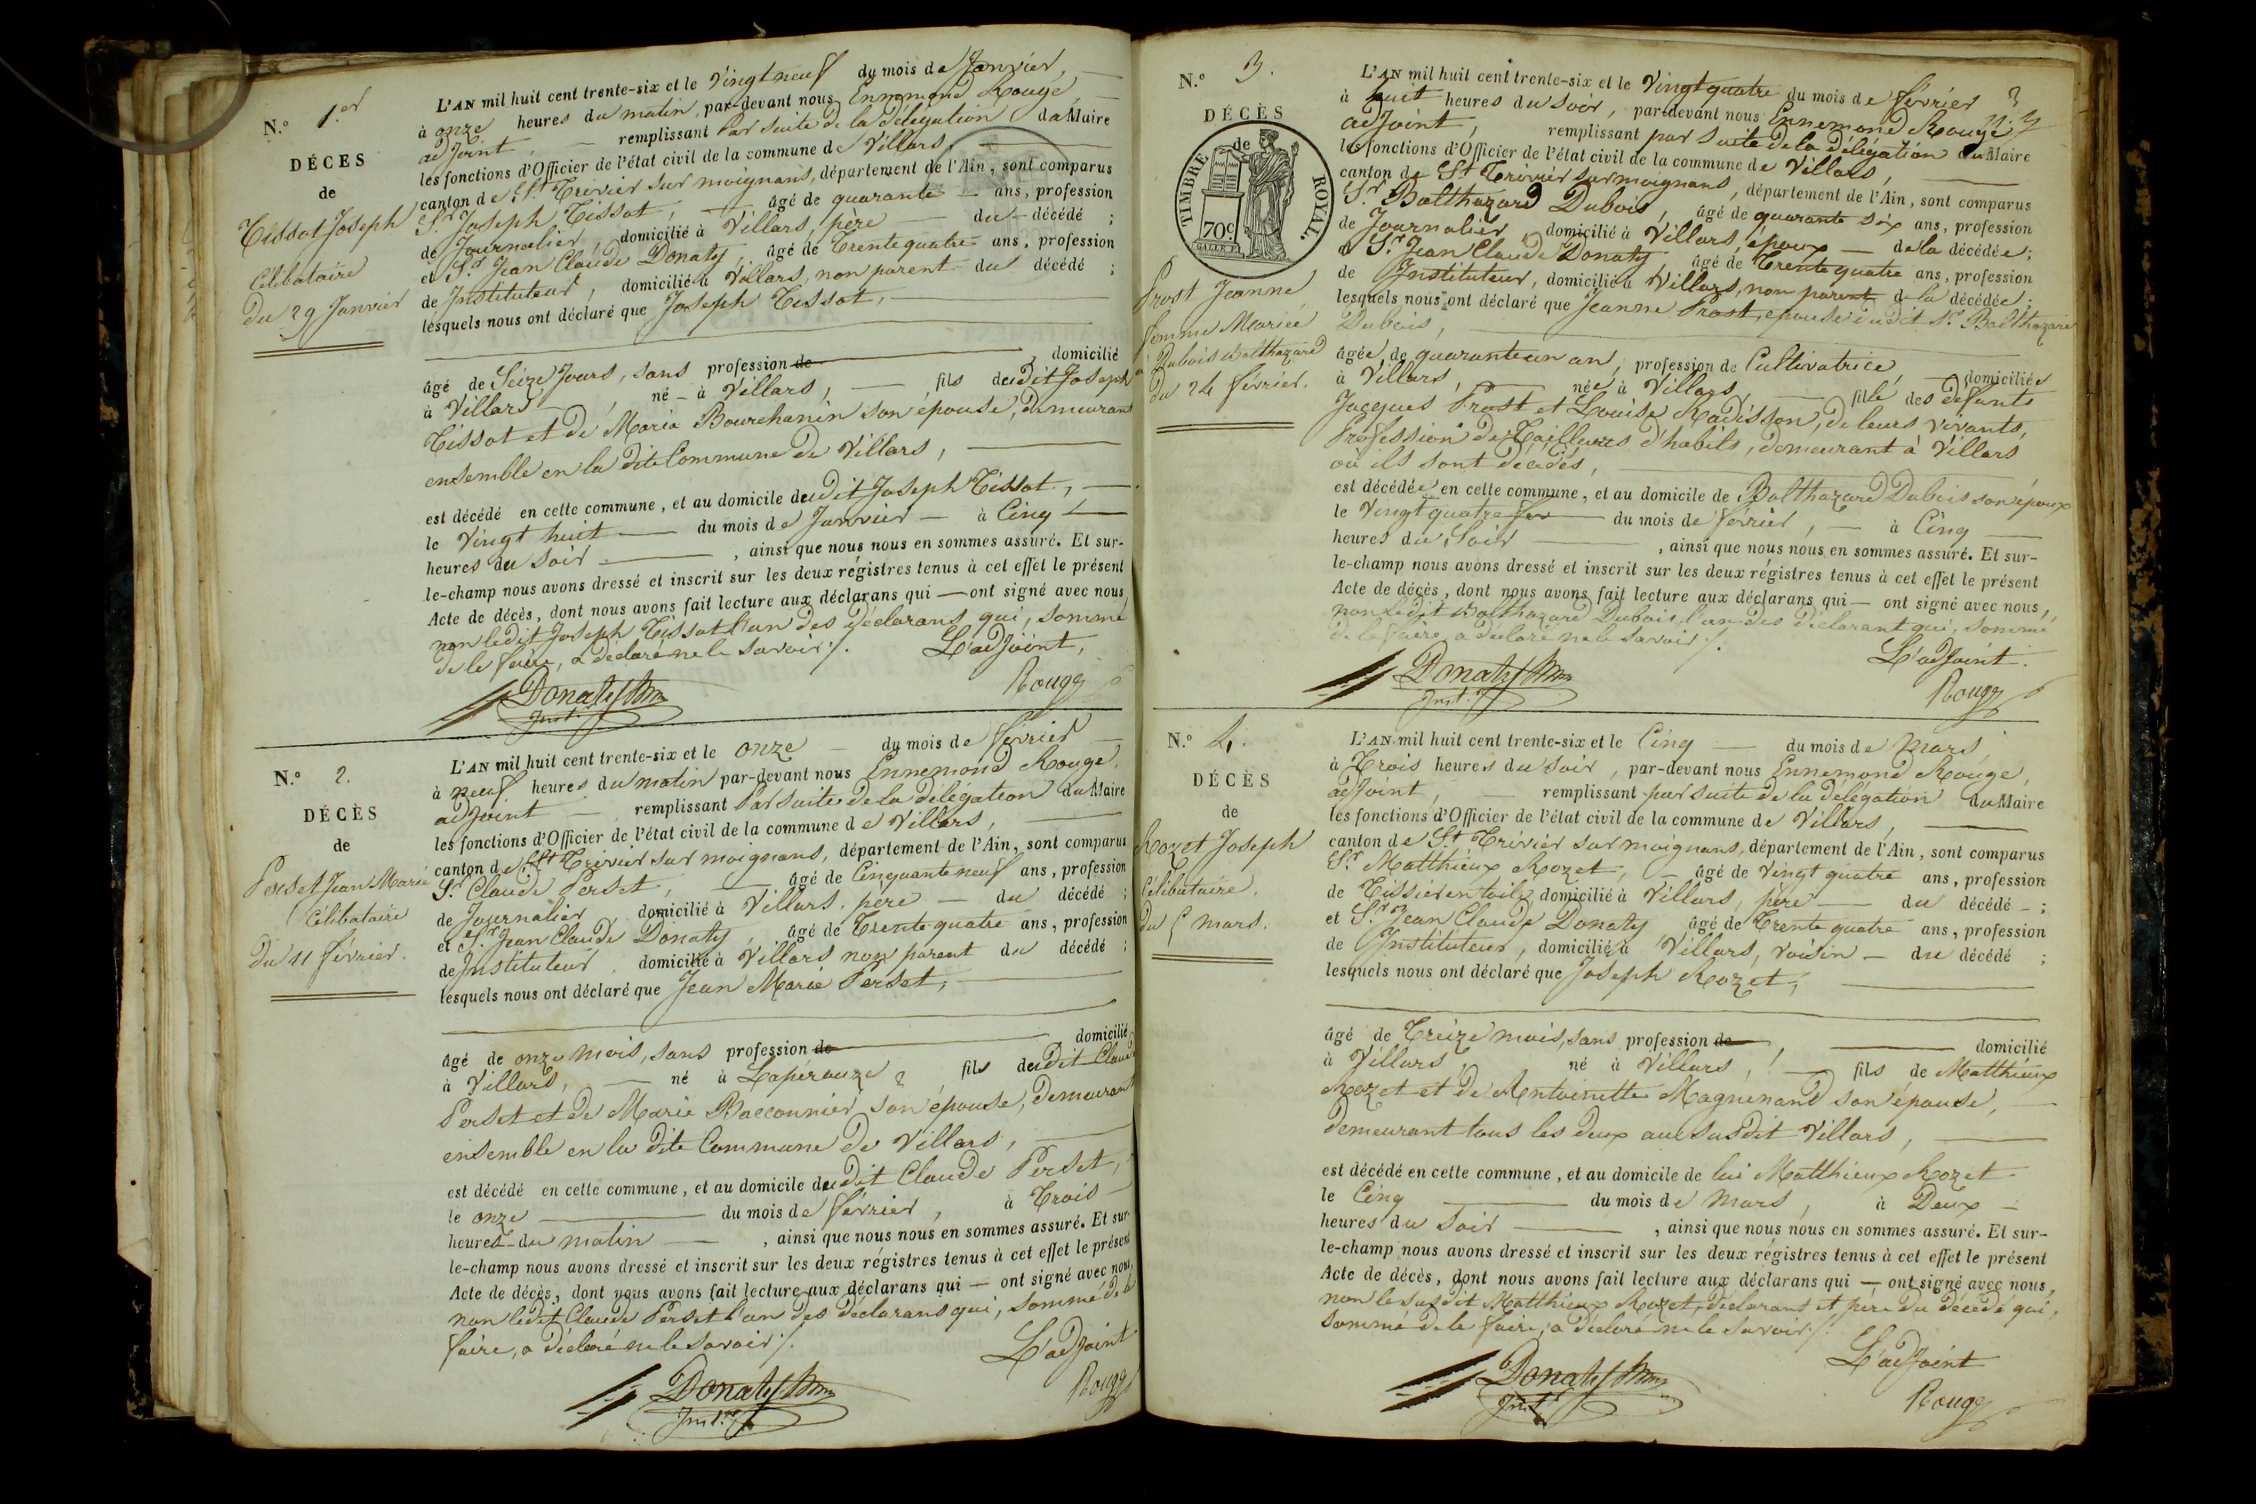 N.° 1.er
DÉCES
de
Tissot Joseph
Célibataire
du 29 Janvier
L'AN mil huit cent trente-six et le Vingt neuf du mois de Janvier
à onze heures du matin, par-devant nous Ennemond Rouge
adjoint, remplissant Par suite de la délégation du Maire
les fonctions d'Officier de l'état civil de la commune de Villars,
canton de St Trivier sur moignans, département de l'Ain, sont comparus
Sr Joseph Tissot, âgé de quarante ans, profession
de Journalier, domicilié à Villars, père du décédé ;
et Sr Jean Claude Donaty, âgé de Trente quatre ans, profession
de Instituteur, domicilié à Villars, non parent du décédé ;
lesquels nous ont déclaré que Joseph Tissot,
âgé de Seize Jours, sans profession de domicilié
à Villars, né à Villars, fils dudit Joseph
Tissot et de Marie Bourchanin son épouse, demeurant
ensemble en la dite Commune de Villars,
est décédé en cette commune, et au domicile dudit Joseph Tissot,
le Vingt huit du mois de Janvier à Cinq
heures du soir, ainsi que nous nous en sommes assuré. Et sur-
le-champ nous avons dressé et inscrit sur les deux régistres tenus à cet effet le présent
Acte de décès, dont nous avons fait lecture aux déclarans qui — ont signé avec nous,
non ledit Joseph Tissot l'un des déclarans qui, sommé
de le faire, a déclaré ne le savoir ./.
L'adjoint,
Donaty
Inst.r
Rouge
N.° 2.
DÉCÈS
de
Perset Jean Marie
Célibataire
du 11 février.
L'AN mil huit cent trente-six et le onze du mois de février
à neuf heures du matin par-devant nous Ennemond Rouge,
adjoint remplissant Par suite de la délégation du Maire
les fonctions d'Officier de l'état civil de la commune de Villars,
canton de St Trivier sur moignans, département de l'Ain, sont comparus
Sr Claude Perset, âgé de Cinquante neuf ans, profession
de Journalier domicilié à Villars, père du décédé ;
et Sr Jean Claude Donaty, âgé de Trente quatre ans, profession
de Instituteur domicilié à Villars non parent du décédé ;
lesquels nous ont déclaré que Jean Marie Perset,
âgé de onze mois, sans profession de domicilié
à Villars, né à Lapérouze, fils dudit Claude
Perset et de Marie Bacconnier son épouse, demeurant
ensemble en la dite Commune de Villars,
est décédé en cette commune, et au domicile dudit Claude Perset,
le onze du mois de février, à Trois
heures du matin, ainsi que nous nous en sommes assuré. Et sur-
le-champ nous avons dressé et inscrit sur les deux régistres tenus à cet effet le présent
Acte de décès, dont nous avons fait lecture aux déclarans qui — ont signé avec nous,
non ledit Claude Perset l'un des déclarans qui, sommé de le
faire, a déclaré ne le savoir ./.
L'adjoint
Donaty
Inst.r
Rouge
N.° 3.
DÉCÈS
de
TIMBRE ROYAL.
70c
Prost Jeanne
femme Mariée
à Dubois Balthazard
du 24 février.
L'AN mil huit cent trente-six et le Vingt quatre du mois de février
à huit heures du soir, par-devant nous Ennemond Rouge
adjoint, remplissant par suite de la délégation du Maire
les fonctions d'Officier de l'état civil de la commune de Villars,
canton de St Trivier sur moignans, département de l'Ain, sont comparus
Sr Balthazard Dubois, âgé de quarante six ans, profession
de Journalier, domicilié à Villars, époux de la décédée ;
et Sr Jean Claude Donaty âgé de Trente quatre ans, profession
de Instituteur, domicilié à Villars, non parent de la décédée ;
lesquels nous ont déclaré que Jeanne Prost, épouse dudit Sr Balthazard
Dubois,
âgée de quarante un an, profession de Cultivatrice, domiciliée
à Villars, née à Villars, fille des défunts
Jacques Prost et Louise Radisson, de leurs vivants,
Profession de Tailleurs d'habits, demeurant à Villars
où ils sont décédés,
est décédée en cette commune, et au domicile de Balthazard Dubois son époux
le Vingt quatre du mois de février, à Cinq
heures du Soir, ainsi que nous nous en sommes assuré. Et sur-
le-champ nous avons dressé et inscrit sur les deux régistres tenus à cet effet le présent
Acte de décès, dont nous avons fait lecture aux déclarans qui — ont signé avec nous,
non ledit Balthazard Dubois l'un des déclarant qui, sommé
de le faire, a déclaré ne le savoir ./.
L'adjoint.
Donaty
Inst.r
Rouge
N.° 4.
DÉCÈS
de
Rozet Joseph
Célibataire.
du 5 mars.
L'AN mil huit cent trente-six et le Cinq du mois de Mars
à Trois heures du soir, par-devant nous Ennemond Rouge,
adjoint, remplissant par suite de la délégation du Maire
les fonctions d'Officier de l'état civil de la commune de Villars,
canton de St Trivier sur moignans, département de l'Ain, sont comparus
Sr Matthieux Rozet, âgé de Vingt quatre ans, profession
de Tissier en toile, domicilié à Villars, père du décédé ;
et Sr Jean Claude Donaty âgé de Trente quatre ans, profession
de Instituteur, domicilié à Villars, voisin du décédé ;
lesquels nous ont déclaré que Joseph Rozet,
âgé de Treize mois, sans profession de, domicilié
à Villars, né à Villars, fils de Matthieux
Rozet et de Antoinette Magnenand son épouse,
demeurant tous les deux au susdit Villars,
est décédé en cette commune, et au domicile de lui Matthieux Rozet
le Cinq du mois de Mars, à Deux
heures du Soir, ainsi que nous nous en sommes assuré. Et sur-
le-champ nous avons dressé et inscrit sur les deux régistres tenus à cet effet le présent
Acte de décès, dont nous avons fait lecture aux déclarans qui — ont signé avec nous,
non le susdit Matthieux Rozet, déclarant et père du décédé qui,
sommé de le faire, a déclaré ne le savoir ./.
L'adjoint
Donaty
Inst.r
Rouge